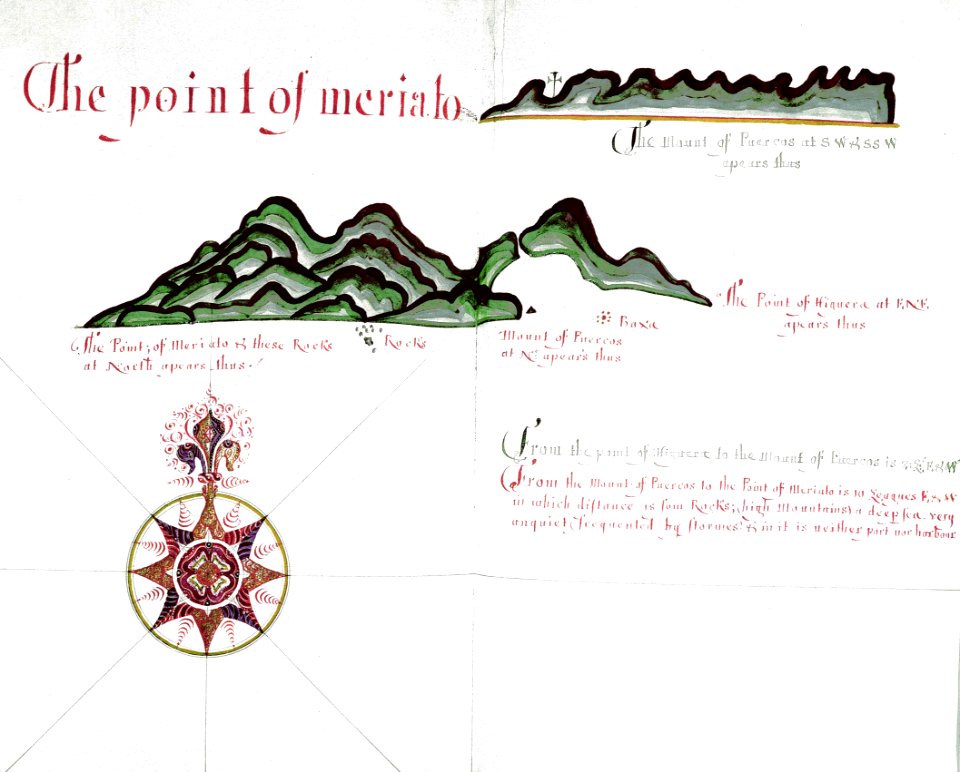 The point of meriato
The Mount of Puercos at S W & SS W
apears thus
The Point of Higuera at E.N.E.
apears thus
Baxa
Rocks
Mount of Puercos
at apears thus
The Point, of Meriato & these Rocks
at North apears thus.
From the point of Higuera to the Mount of Puercos is
From the Mount of Puercos to the Point of Meriato is 10 Leagues E, & W
in which distance is som Rocks, high Mountains & a deep sea very
unquiet, frequented by stormes & in it is neither port nor harbour